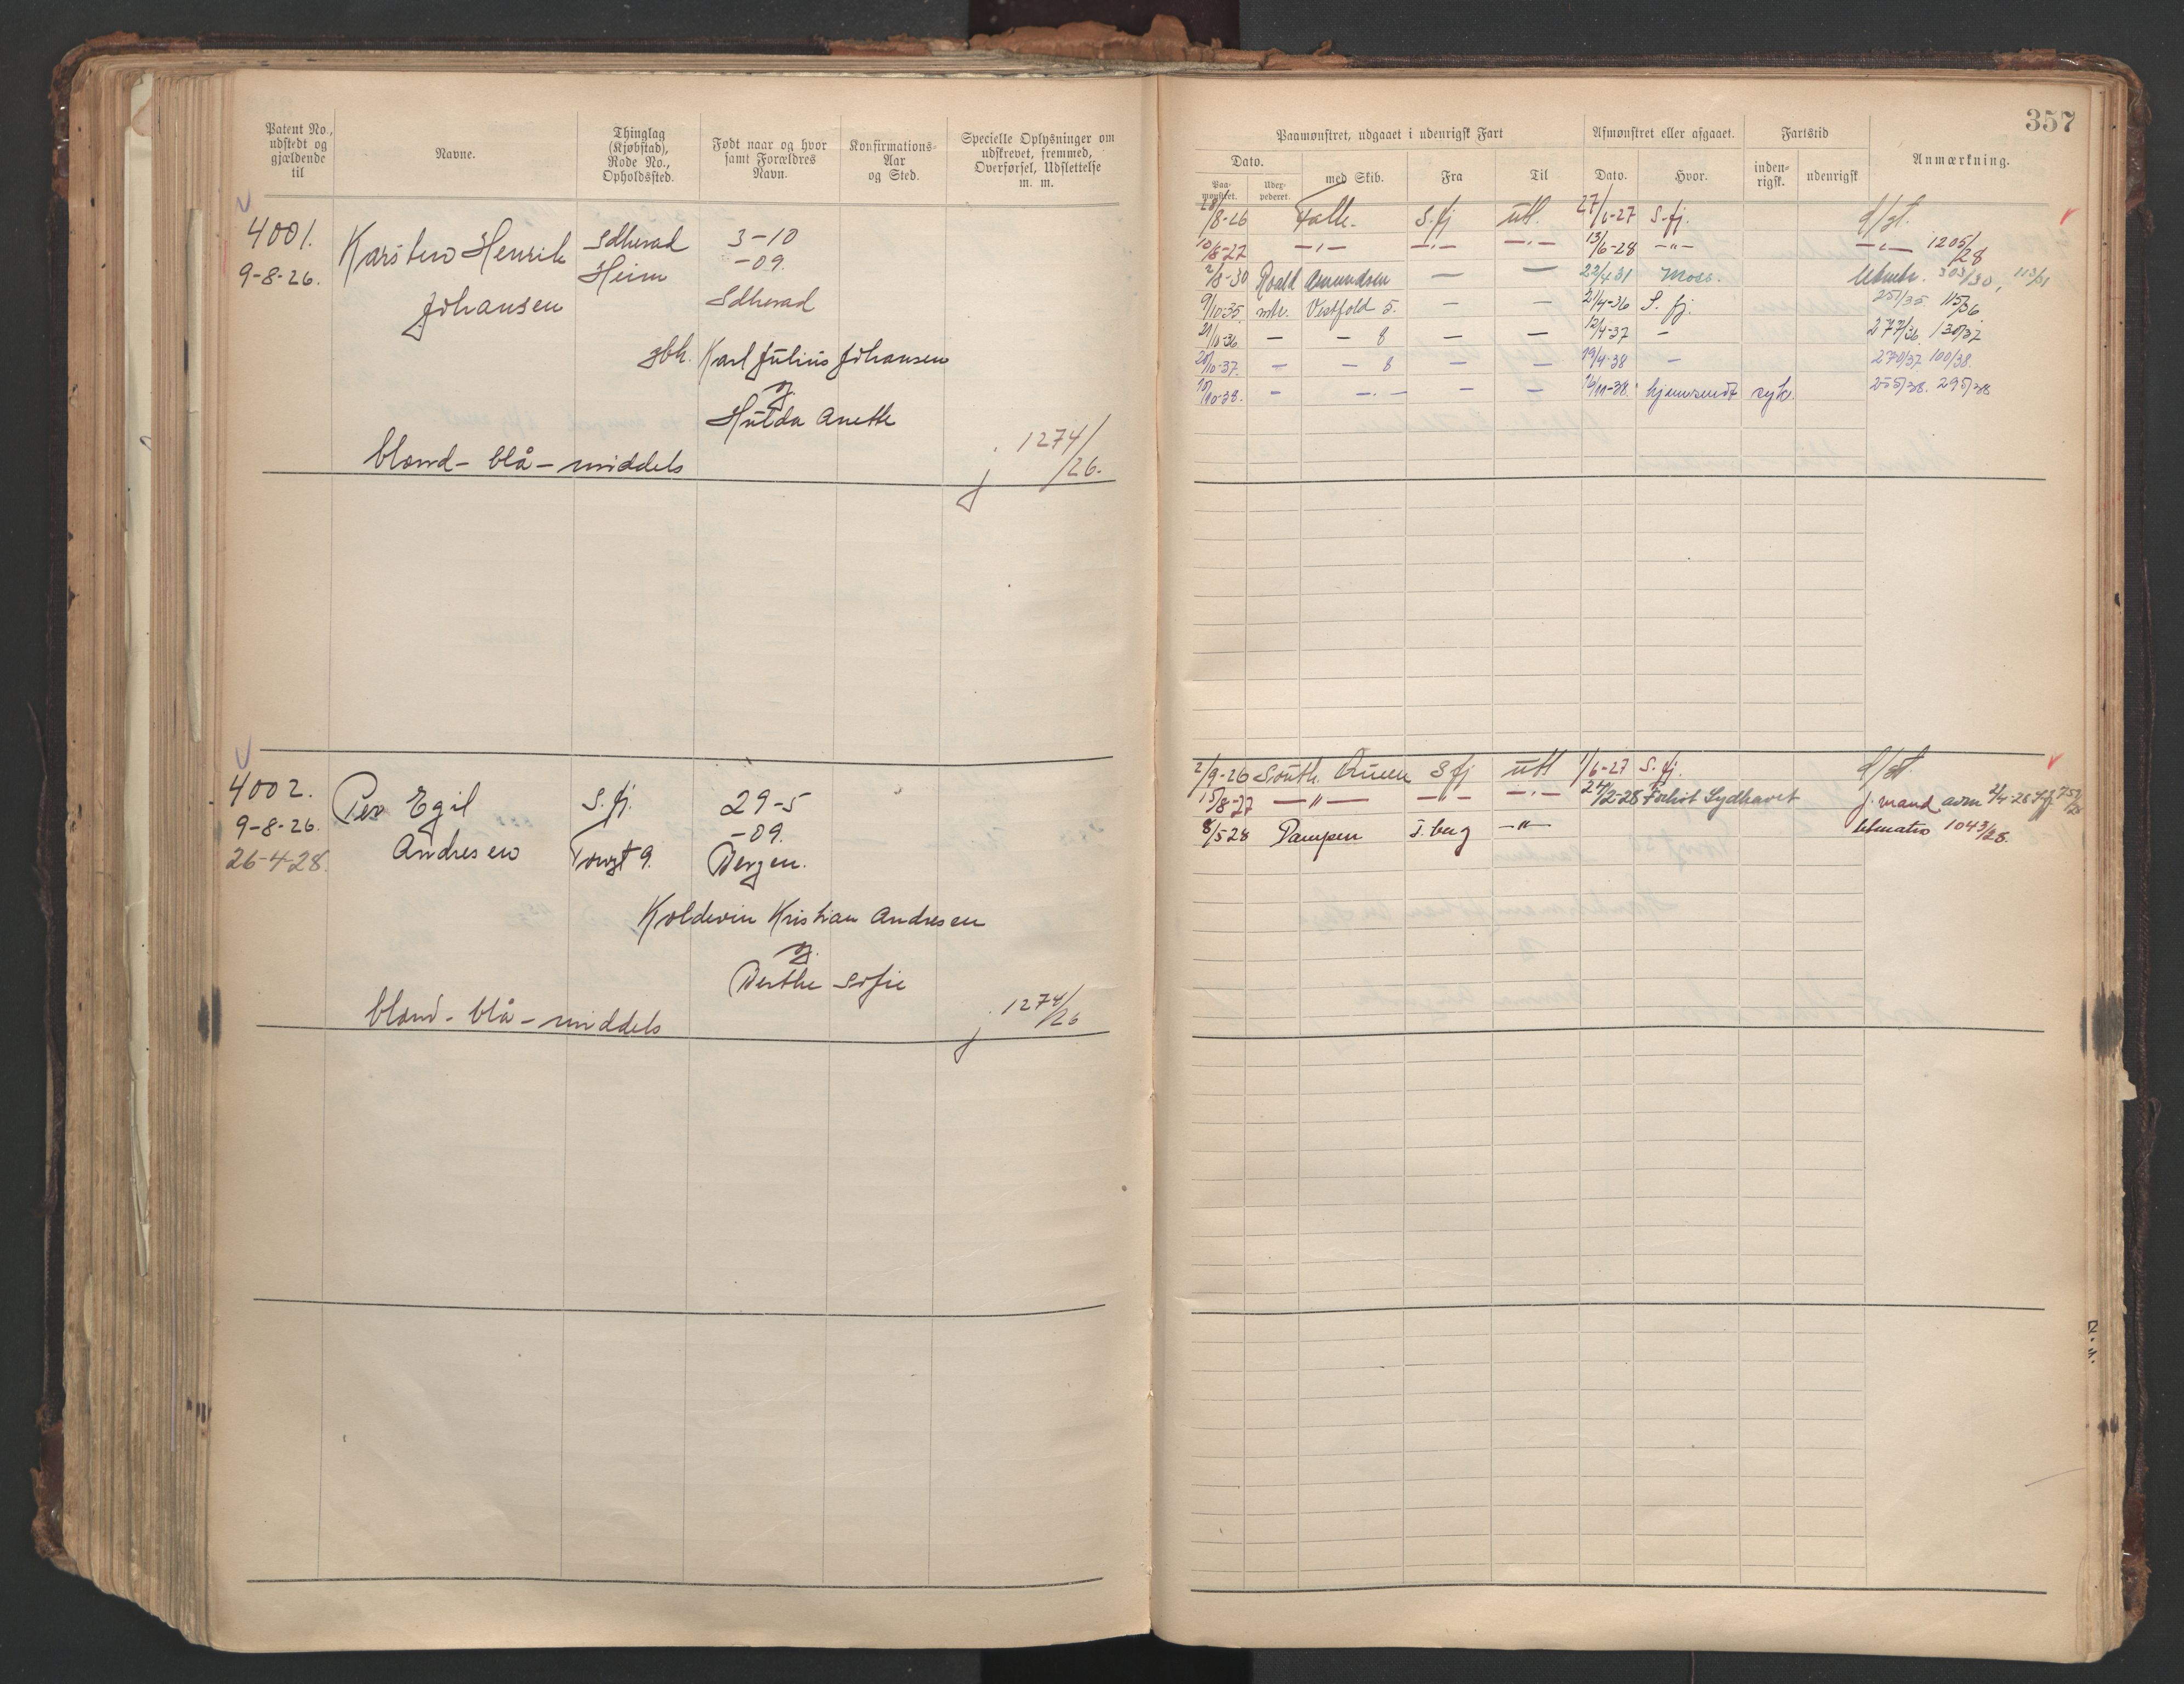 357
Patent No., udstedt og gjældende til
Navne.
Thinglag (Kjøbstad), Rode No., Opholdssted.
Født naar og hvor samt Forældres Navn.
Konfirmations-Aar og Sted.
Specielle Oplysninger om udskrevet, fremmed, Overførsel, Udslettelse m. m.
Paamønstret, udgaaet i udenrigsk Fart
Afmønstret eller afgaaet.
Fartstid
Anmærkning.
Dato.
Paa-mønstret.
Udex-pederet.
med Skib.
Fra
Til
Dato.
Hvor.
inden-rigsk.
udenrigsk
4001.
9-8-26.
Karsten Henrik
Johansen
Sdherad
Heim
3-10
-09.
Sdherad
gbh. Karl Julius Johansen
og
Hulda Anette
blond - blå - middels
1274/26.
28/8-26 Falk. S.fj utl. 27/6-27 S.fj. d/gt.
10/8-27 -"- -"- -"- 13/6-28 -"- -"- 1205/28
2/8-30 Roald Amundsen — — 22/4 31 Moss. 303/30, 113/31
9/10-35 Vestfold 5. — — 21/4-36 S. fj. 251/35 115/36
21/10-36 — - 8 — — 12/4-37 - 277/36 130/37
20/10-37. — - 8 — — 19/4-38 — 270/37 100/38.
15/10-38. - -"- — — 16/11-38. hjemsendt syk. 255/38. 295/38
4002.
9-8-26.
26-4-28.
Per Egil
Andresen
S. fj.
Torvgt 9.
29-5
-09.
Bergen.
Koldevin Kristian Andresen
og
Berthe Sofie
blond - blå - middels
1274/26
2/9-26 South. Queen S fj utl 1/6-27 S. fj. d/gt.
15/8-27 -"- -"- -"- 24/2-28 Forlist Sydhavet j. mand avm 2/4-28 Sfj 752/28
8/5 28 Pampen T.berg -"- 1043/28.